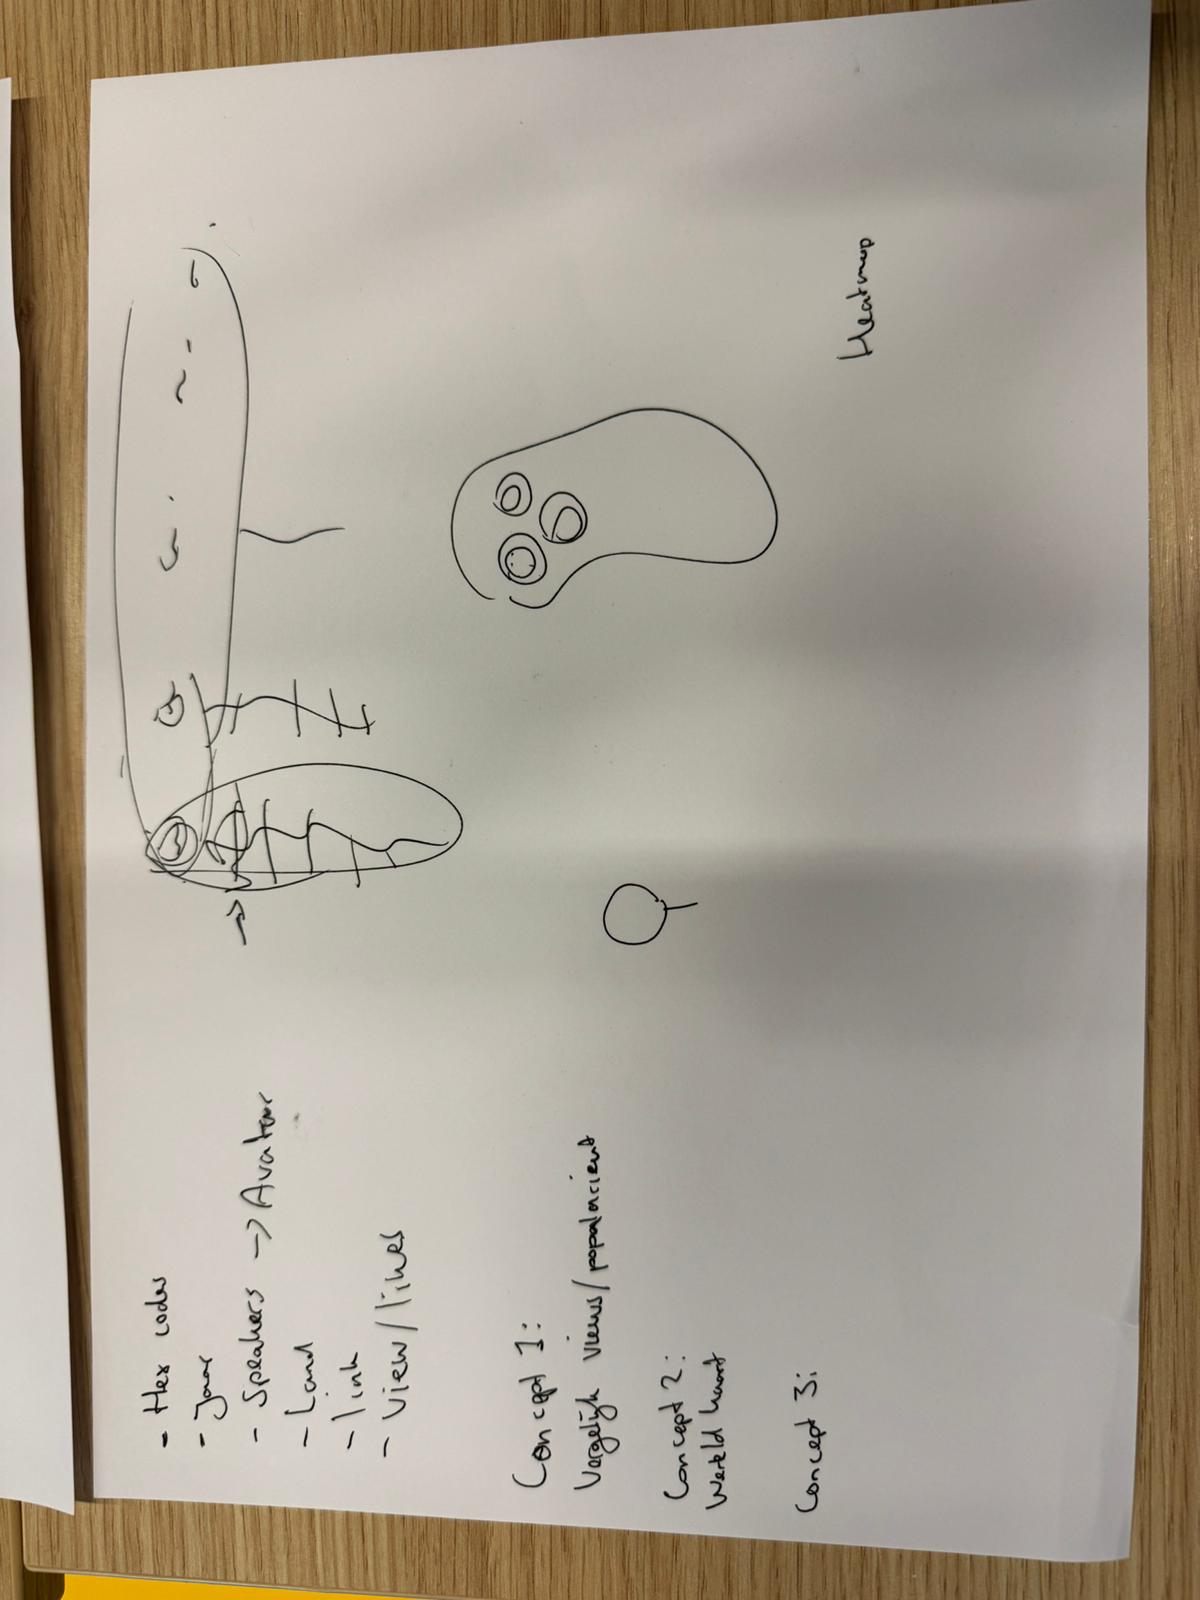 - Hex codes
- Jaar
- Speakers -> Avatar
- Land
- link
- View/likes
Concept 1:
Vergelijk views/populacient
Concept 2:
Wereld kaart
Concept 3:
Heatmap